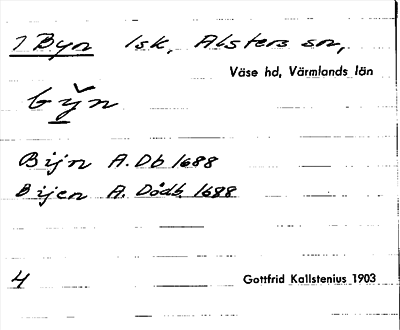 1 Byn lsk, Alsters sn,
Väse hd, Värmlands län
by̌n
Bijn A. Db 1688
Bijen A. Dödb. 1688
4
Gottfrid Kallstenius 1903